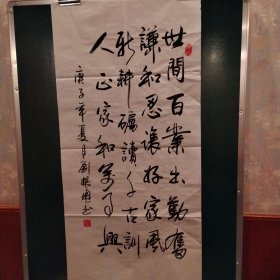 世間百業出勤奮
謙和忍讓好家風
新耕礪讀千古訓
人正家和萬事興
庚子年夏月劉振